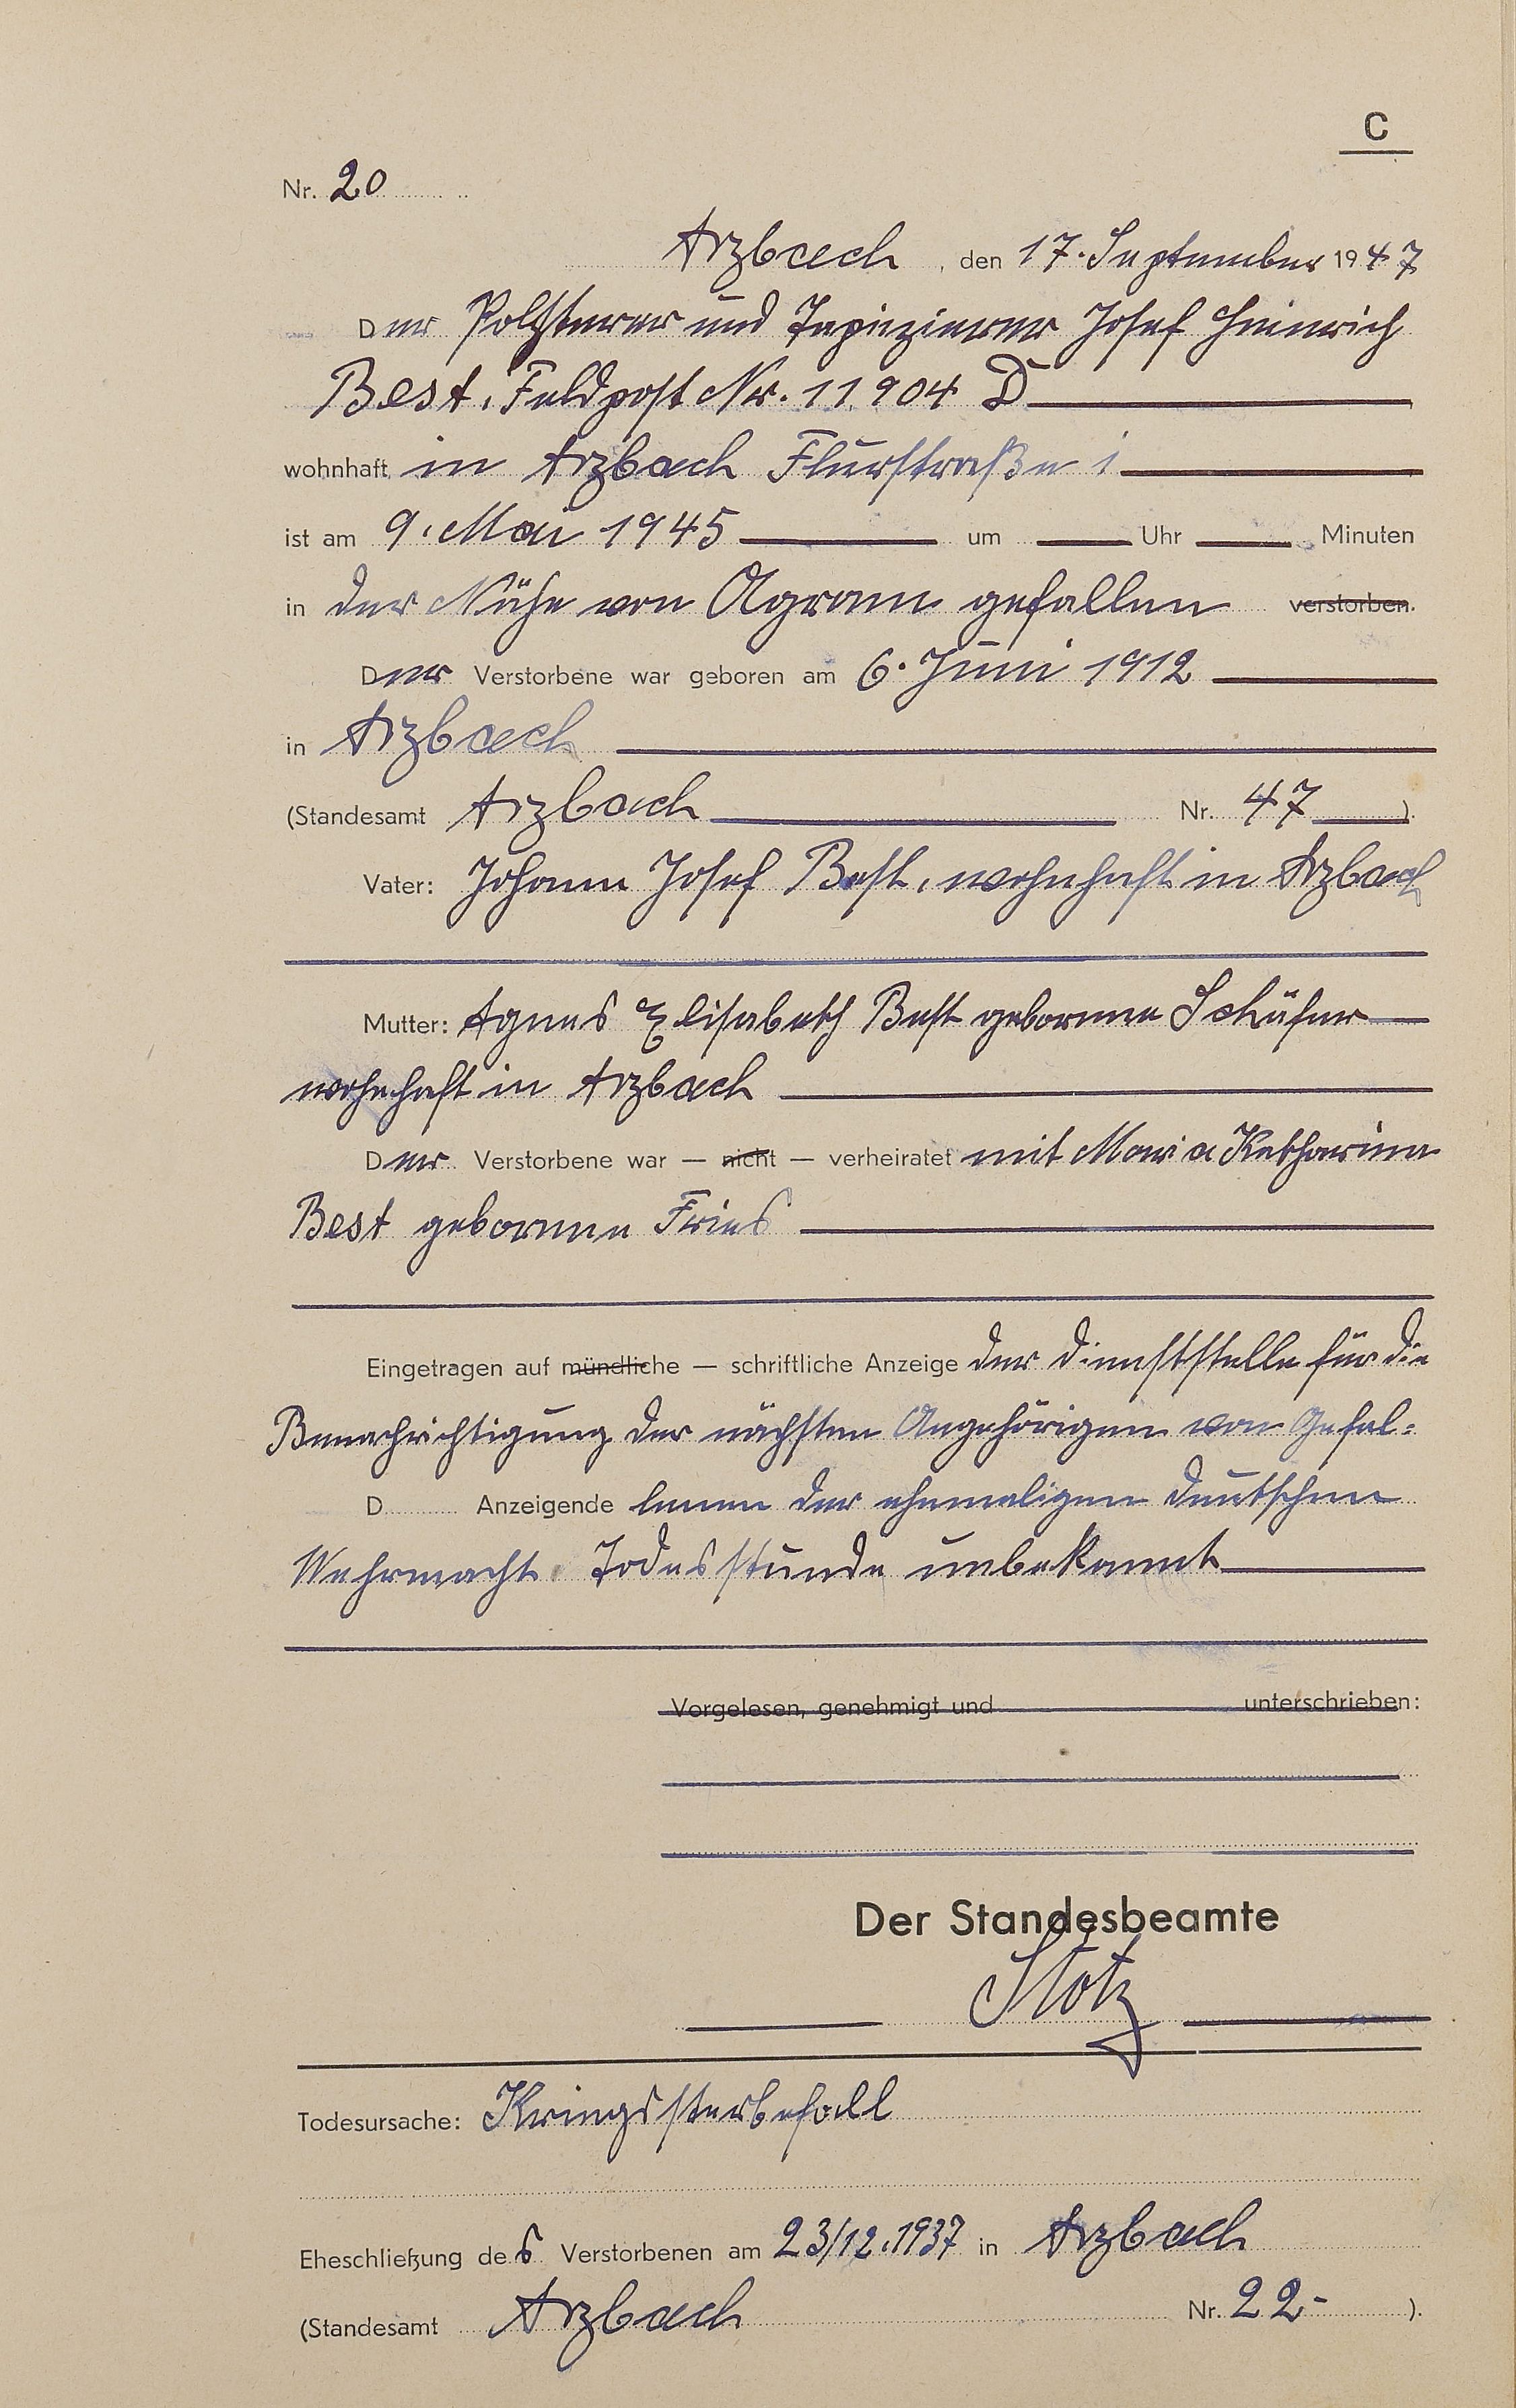 C
Nr. 20
Arzbach, den 17. September 1947
Der Polsterer und Tapezierer Josef Heinrich
Best, Feldpost Nr. 11904 D
wohnhaft in Arzbach Flurstraße 1
ist am 9. Mai 1945 um Uhr Minuten
in der Nähe von Agram gefallen verstorben.
Der Verstorbene war geboren am 6. Juni 1912
in Arzbach
(Standesamt Arzbach Nr. 47)
Vater: Johann Josef Best, wohnhaft in Arzbach
Mutter: Agnes Elisabeth Best geborene Schäfer
wohnhaft in Arzbach
Der Verstorbene war — nicht — verheiratet mit Maria Katharina
Best geborene Fries
Eingetragen auf mündliche — schriftliche Anzeige der Dienststelle für die
Benachrichtigung der nächsten Angehörigen von Gefal=
D Anzeigende lenen der ehemaligen deutschen
Wehrmacht. Todesstunde unbekannt
Vorgelesen, genehmigt und unterschrieben:
Der Standesbeamte
Stotz
Todesursache: Kriegssterbefall
Eheschließung des Verstorbenen am 23/12.1937 in Arzbach
(Standesamt Arzbach Nr. 22-).